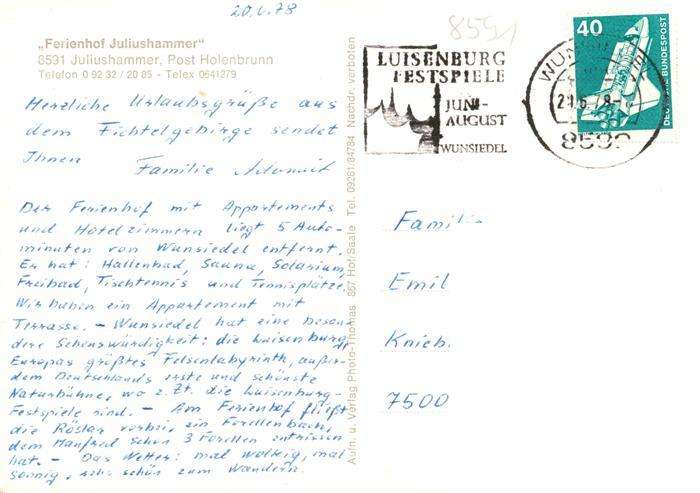 20.6.78
8591
„Ferienhof Juliushammer"
8591 Juliushammer, Post Holenbrunn
Telefon 0 92 32 / 20 85 - Telex 0641279
Herzliche Urlaubsgrüße aus
dem Fichtelgebirge sendet
Ihnen Familie
Der Ferienhof mit Appartements
und Hotelzimmern liegt 5 Auto-
minuten von Wunsiedel entfernt.
Er hat: Hallenbad, Sauna, Solarium,
Freibad, Tischtennis und Tennisplätze.
Wir haben ein Appartement mit
Terrasse. - Wunsiedel hat eine beson-
dere Sehenswürdigkeit: die Luisenburg,
Europas größtes Felsenlabyrinth, außer-
dem Deutschlands erste und schönste
Naturbühne, wo z. Zt. die Luisenburg-
Festspiele sind. - Am Ferienhof fließt
die Röslau vorbei, ein Forellenbach,
dem Manfred schon 3 Forellen entrissen
hat. - Das Wetter: mal wolkig, mal
sonnig, sehr schön zum Wandern.
Aufn. u. Verlag Photo-Thomas 867 Hof/Saale Tel. 09281/84784 Nachdr. verboten
LUISENBURG
FESTSPIELE
JUNI-
AUGUST
WUNSIEDEL
40
DEUTSCHE BUNDESPOST
Familie
Emil
Knieb.
7500